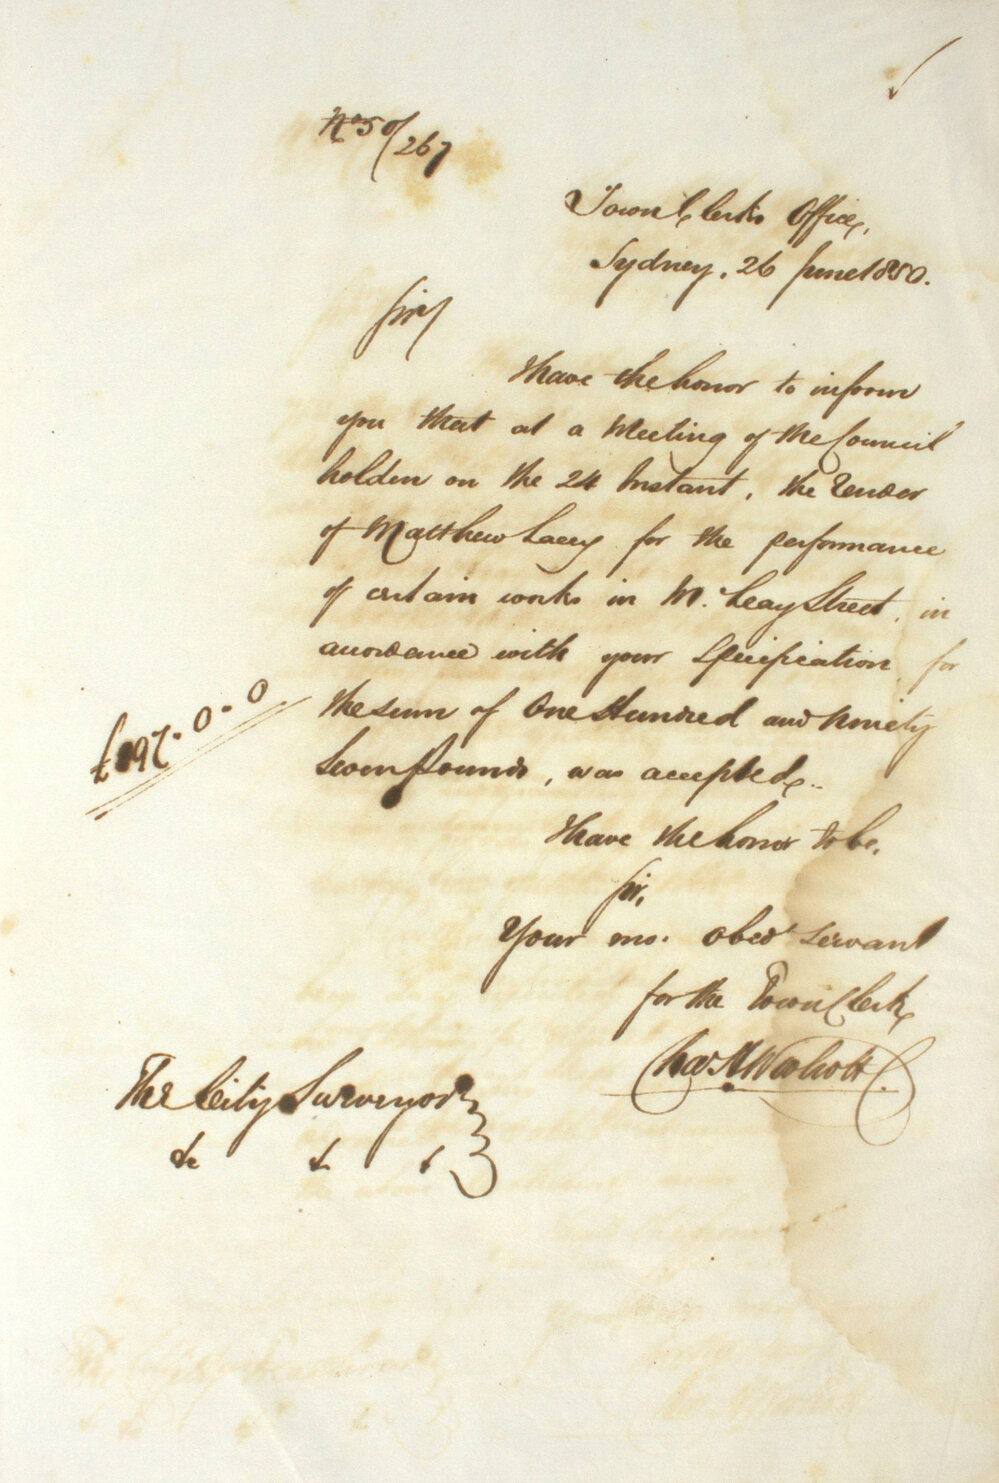 No 50/267
Town Clerks Office,
Sydney, 26 June 1850.
Sir/
I have the honor to inform
you that at a Meeting of the Council
holden on the 24 Instant, the Tender
of Matthew Lacey for the performance
of certain works in McLeay Street, in
accordance with your Specification for
the sum of One Hundred and Ninety
£197.0.0
Seven Pounds, was accepted.
I have the honor to be,
Sir,
Your mo. obedt Servant
for the Town Clerk
Chas H Woolcott
The City Surveyor
&c &c &c